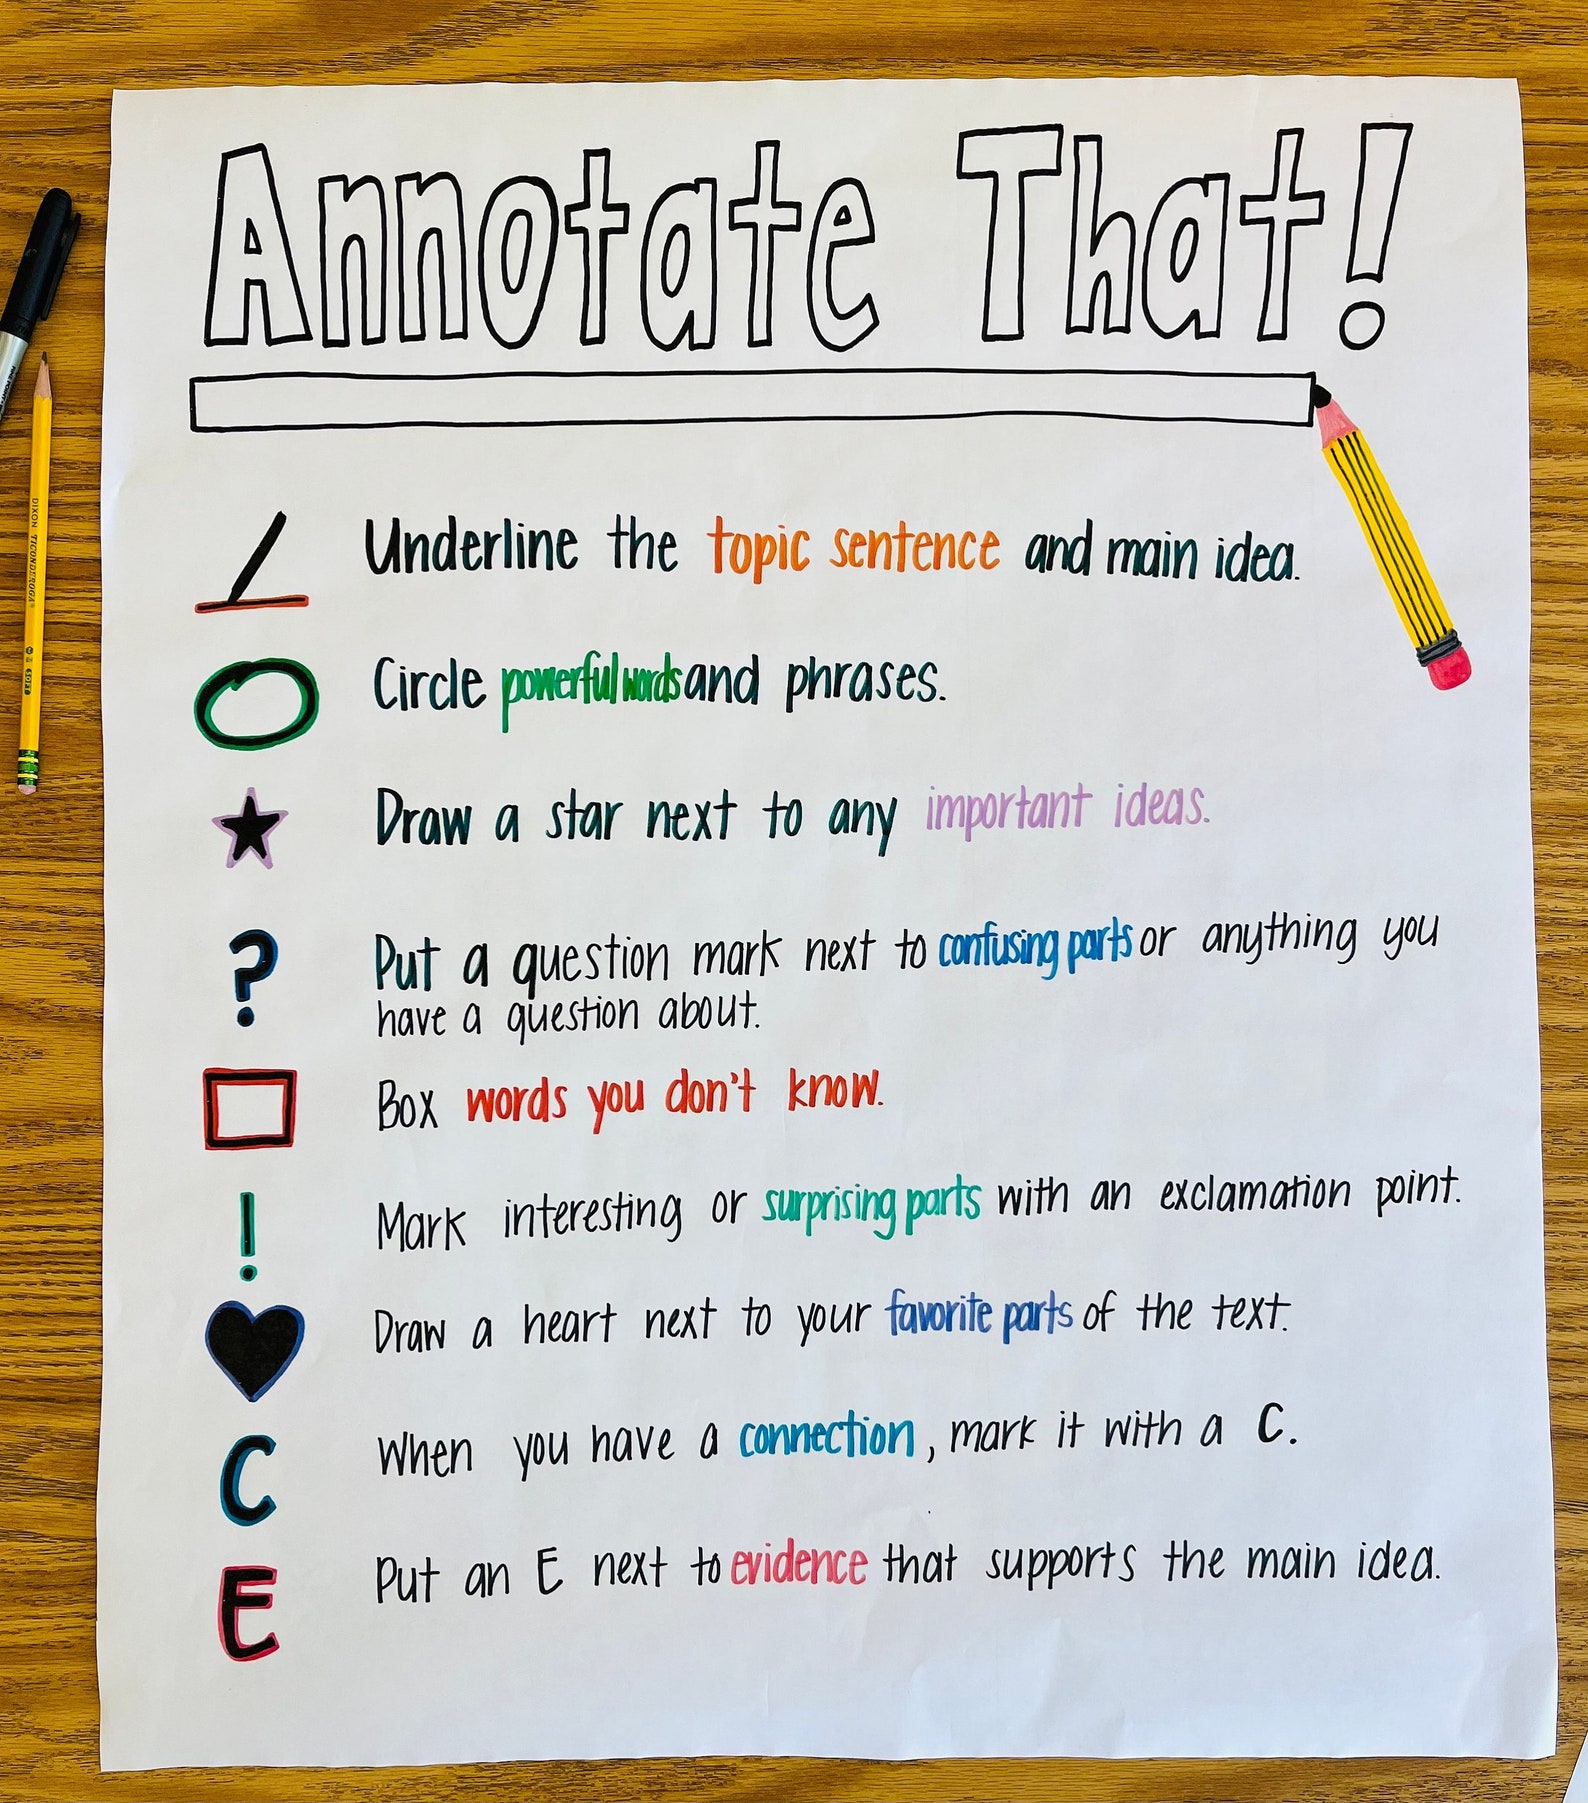 Annotate That!
Underline the topic sentence and main idea.
Circle powerful words and phrases.
Draw a star next to any important ideas.
? Put a question mark next to confusing parts or anything you
have a question about.
Box words you don't know.
! Mark interesting or surprising parts with an exclamation point.
Draw a heart next to your favorite parts of the text.
C When you have a connection, mark it with a C.
E Put an E next to evidence that supports the main idea.
DIXON TICONDEROGA